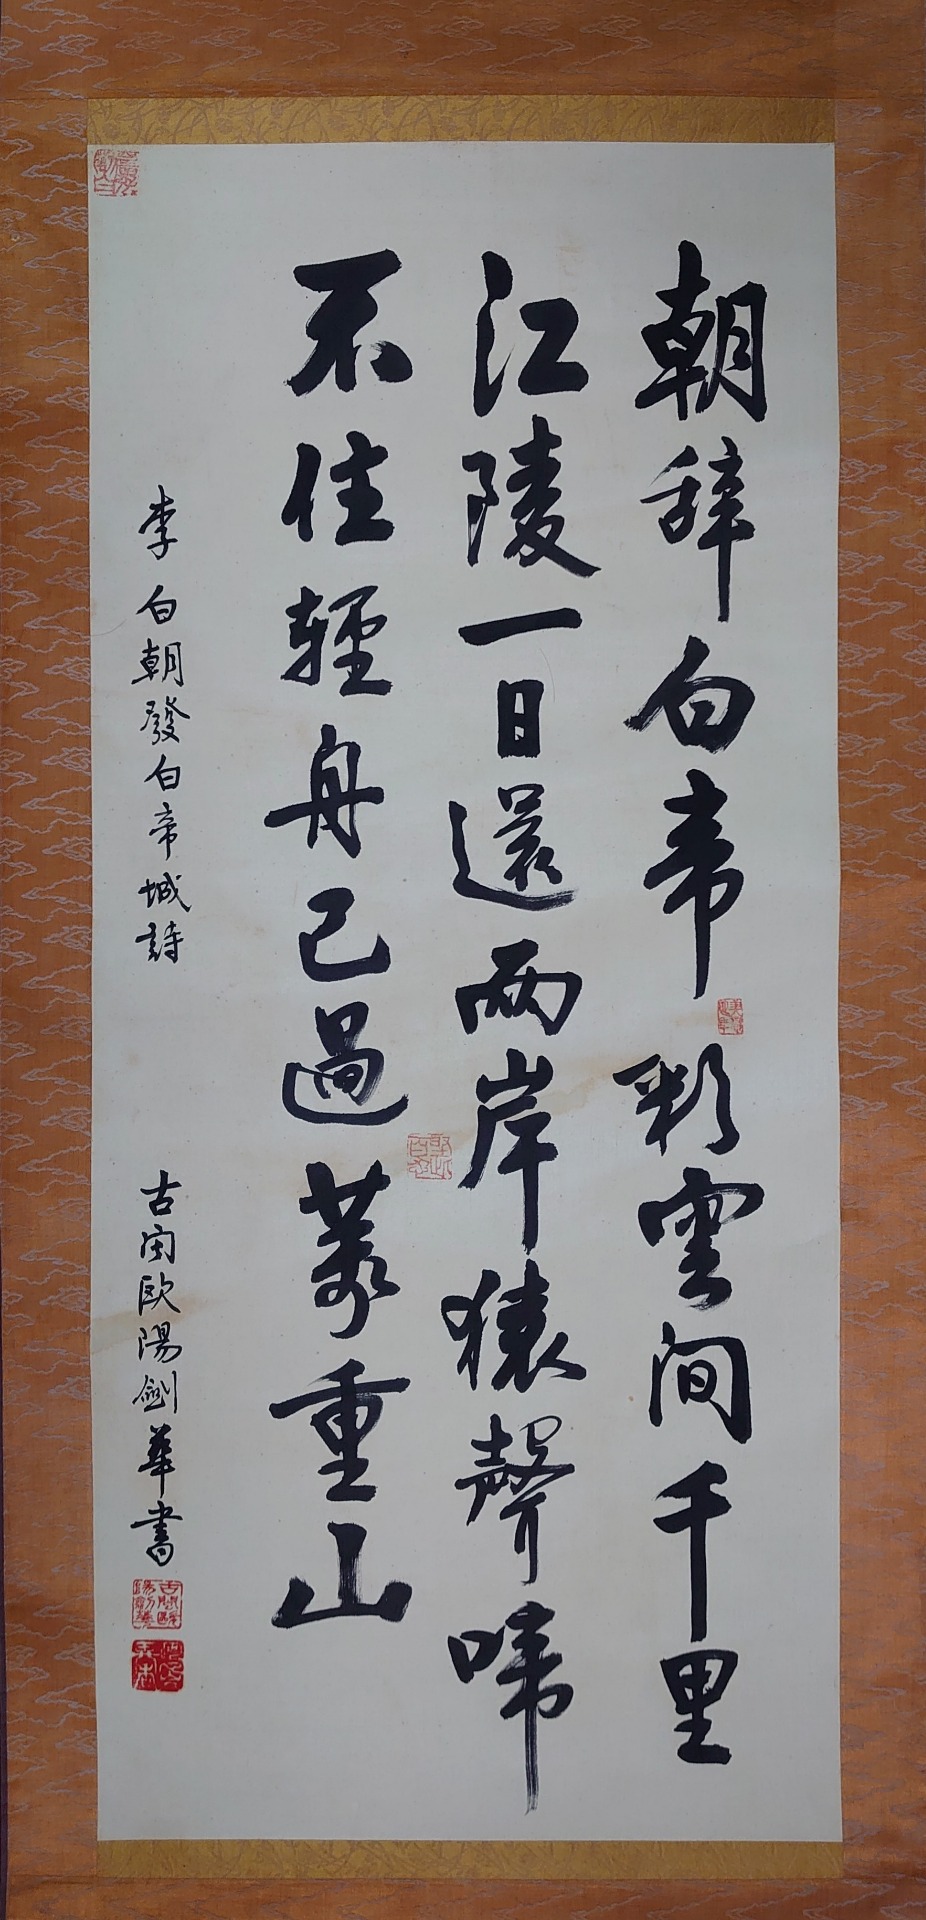 朝辞白帝彩雲間千里
江陵一日還兩岸猿聲啼
不住輕舟已過萬重山
李白朝發白帝城詩
古閩歐陽劍華書